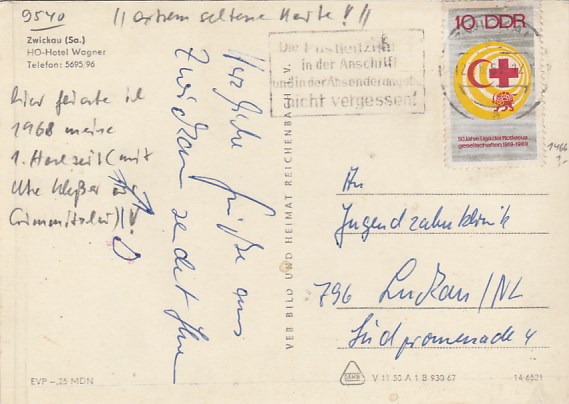 9540 // extrem seltene Karte! //
Zwickau (Sa.)
HO-Hotel Wagner
Telefon: 5695/96
hier feierte ich
1968 meine
1. Hochzeit (mit
Ute
Crimmitschau)!!
Herzliche Grüße aus
Zwickau sendet Ihnen
VEB BILD UND HEIMAT REICHENBACH I. V.
Die Postleitzahl
in der Anschrift
und in der Absenderangabe
nicht vergessen!
10 DDR
50 Jahre Liga der Rotkreuz-
gesellschaften 1919-1969
1466
An
Jugendzahnklinik
796 Luckau/NL
Südpromenade 4
EVP -,25 MDN
V 11 50 A 1 B 930/67
14-6521